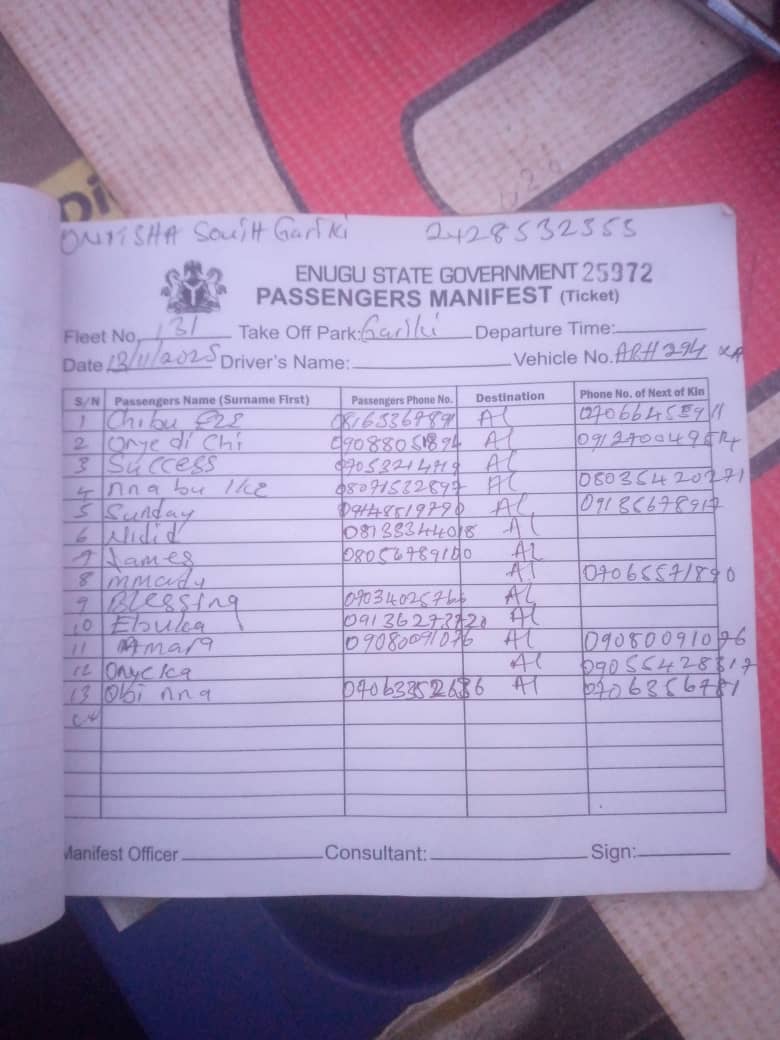 Di
ONITSHA South Gariki 2428532555
ENUGU STATE GOVERNMENT 25972
PASSENGERS MANIFEST (Ticket)
Fleet No. 131 Take Off Park: Gariki Departure Time:
Date 13/11/2025 Driver's Name: Vehicle No. ARH 294 XA
S/N Passengers Name (Surname First) Passengers Phone No. Destination Phone No. of Next of Kin
1 Chibu Eze Al
2 Onye di Chi Al
3 Success Al
4 nna bu Ike 08071532897 Al 08035420271
5 Sunday 09148519790 Al 09135678917
6 08133344018 Al
7 James 08056789100 Al
8 Al 07065571890
9 Blessing Al
10 Ebuka Al
11 Amara 09080091076 Al 09080091076
12 Onyeka Al 09055428317
13 Obi nna Al
Manifest Officer Consultant: Sign: